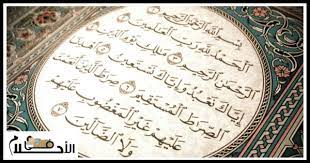 بسم الله الرحمن الرحيم
الحمد لله رب العالمين
الرحمن الرحيم ملك يوم الدين
إياك نعبد وإياك نستعين اهدنا
الصرط المستقيم صرط الذين أنعمت
عليهم غير المغضوب عليهم
ولا الضالين
الأحلام